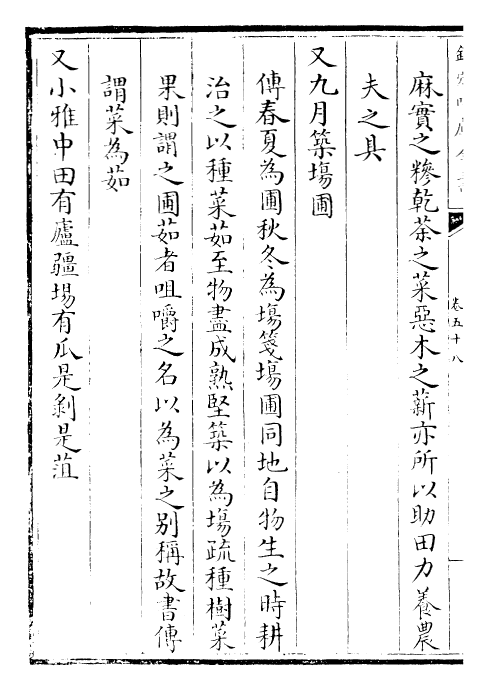 卷五十八
麻實之糝乾荼之菜惡木之薪亦所以助田力養農
夫之具
又九月築塲圃
傳春夏為圃秋冬為塲箋塲圃同地自物生之時耕
治之以種菜茹至物盡成熟堅築以為塲疏種樹菜
果則謂之圃茹者咀嚼之名以為菜之别稱故書傳
謂菜為茹
又小雅中田有廬疆埸有瓜是剝是菹